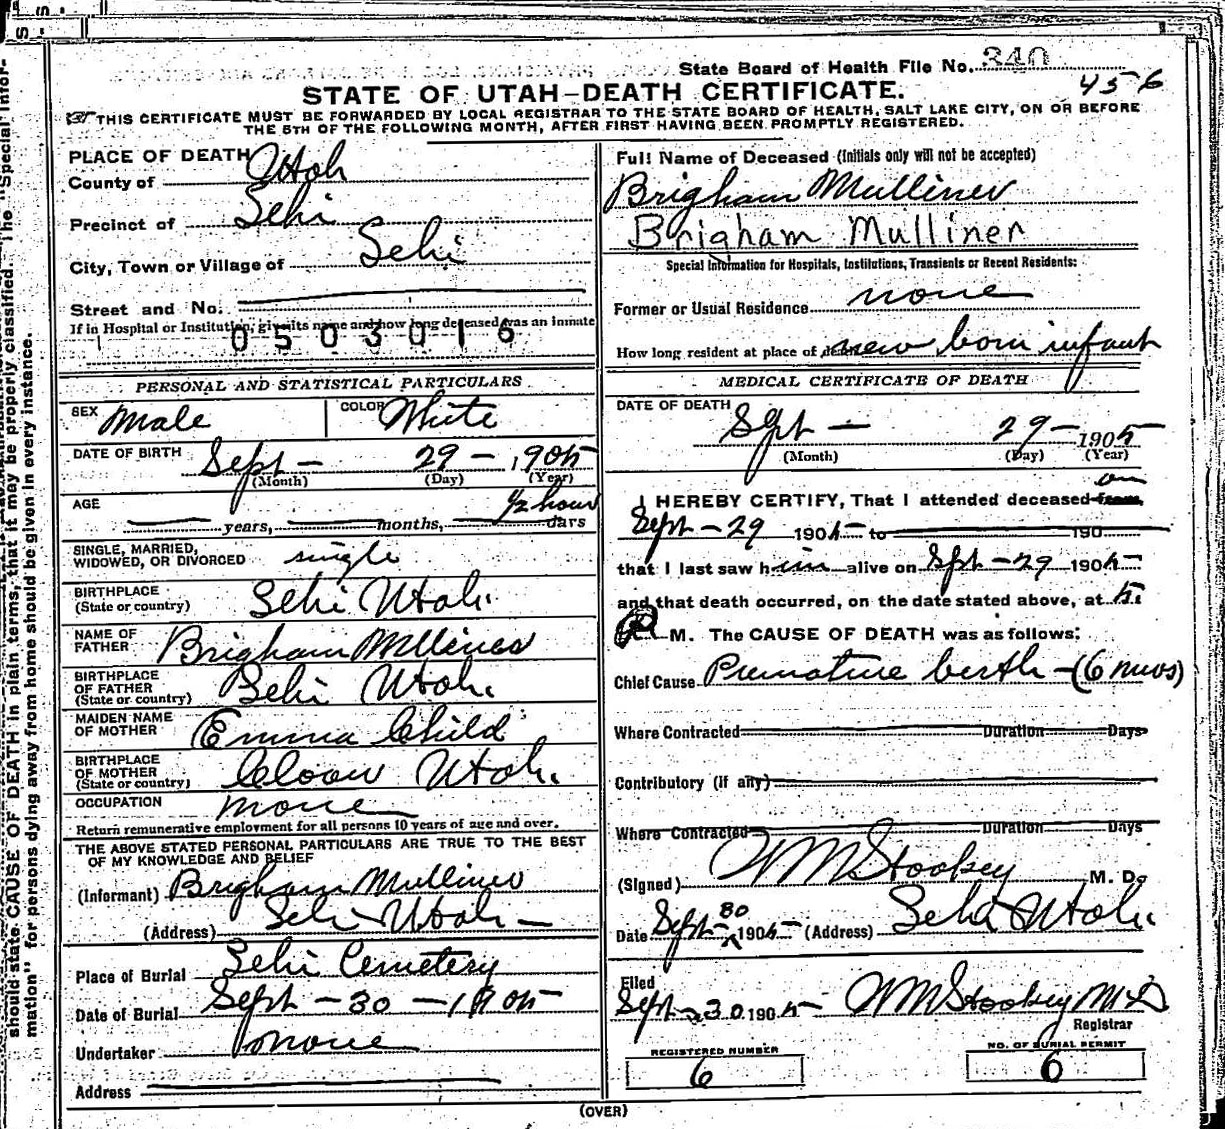 State Board of Health File No. 340
456
STATE OF UTAH—DEATH CERTIFICATE.
THIS CERTIFICATE MUST BE FORWARDED BY LOCAL REGISTRAR TO THE STATE BOARD OF HEALTH, SALT LAKE CITY, ON OR BEFORE
THE 5TH OF THE FOLLOWING MONTH, AFTER FIRST HAVING BEEN PROMPTLY REGISTERED.
should state CAUSE OF DEATH in plain terms, that it may be properly classified. The "Special Infor-
mation" for persons dying away from home should be given in every instance.
PLACE OF DEATH
County of Utah
Precinct of Lehi
City, Town or Village of Lehi
Street and No.
If in Hospital or Institution, give its name and how long deceased was an inmate
0503016
PERSONAL AND STATISTICAL PARTICULARS
SEX Male COLOR White
DATE OF BIRTH Sept - 29 - 1905
(Month) (Day) (Year)
AGE 1/2 hour
years, months, days
SINGLE, MARRIED,
WIDOWED, OR DIVORCED single
BIRTHPLACE
(State or country) Lehi Utah.
NAME OF
FATHER Brigham Mulliner
BIRTHPLACE
OF FATHER
(State or country) Lehi Utah.
MAIDEN NAME
OF MOTHER Emma Child
BIRTHPLACE
OF MOTHER
(State or country) Utah.
OCCUPATION none
Return remunerative employment for all persons 10 years of age and over.
THE ABOVE STATED PERSONAL PARTICULARS ARE TRUE TO THE BEST
OF MY KNOWLEDGE AND BELIEF
(Informant) Brigham Mulliner
(Address) Lehi Utah -
Place of Burial Lehi Cemetery
Date of Burial Sept - 30 - 1905
Undertaker none
Address
Full Name of Deceased (Initials only will not be accepted)
Brigham Mulliner
Brigham Mulliner
Special Information for Hospitals, Institutions, Transients or Recent Residents:
Former or Usual Residence none
How long resident at place of death new born infant
MEDICAL CERTIFICATE OF DEATH
DATE OF DEATH Sept - 29 - 1905
(Month) (Day) (Year)
on
I HEREBY CERTIFY, That I attended deceased from,
Sept - 29 1905 to 190
that I last saw him alive on Sept - 29 1905
and that death occurred, on the date stated above, at 5.
P M. The CAUSE OF DEATH was as follows:
Chief Cause Premature berth - (6 mos)
Where Contracted Duration Days
Contributory (if any)
Where Contracted Duration Days
(Signed) WM Stookey M. D.
Date Sept 30 1905 (Address) Lehi Utah.
Filed
Sept - 30 1905 WM Stookey MD
Registrar
REGISTERED NUMBER
6
NO. OF BURIAL PERMIT
6
(OVER)